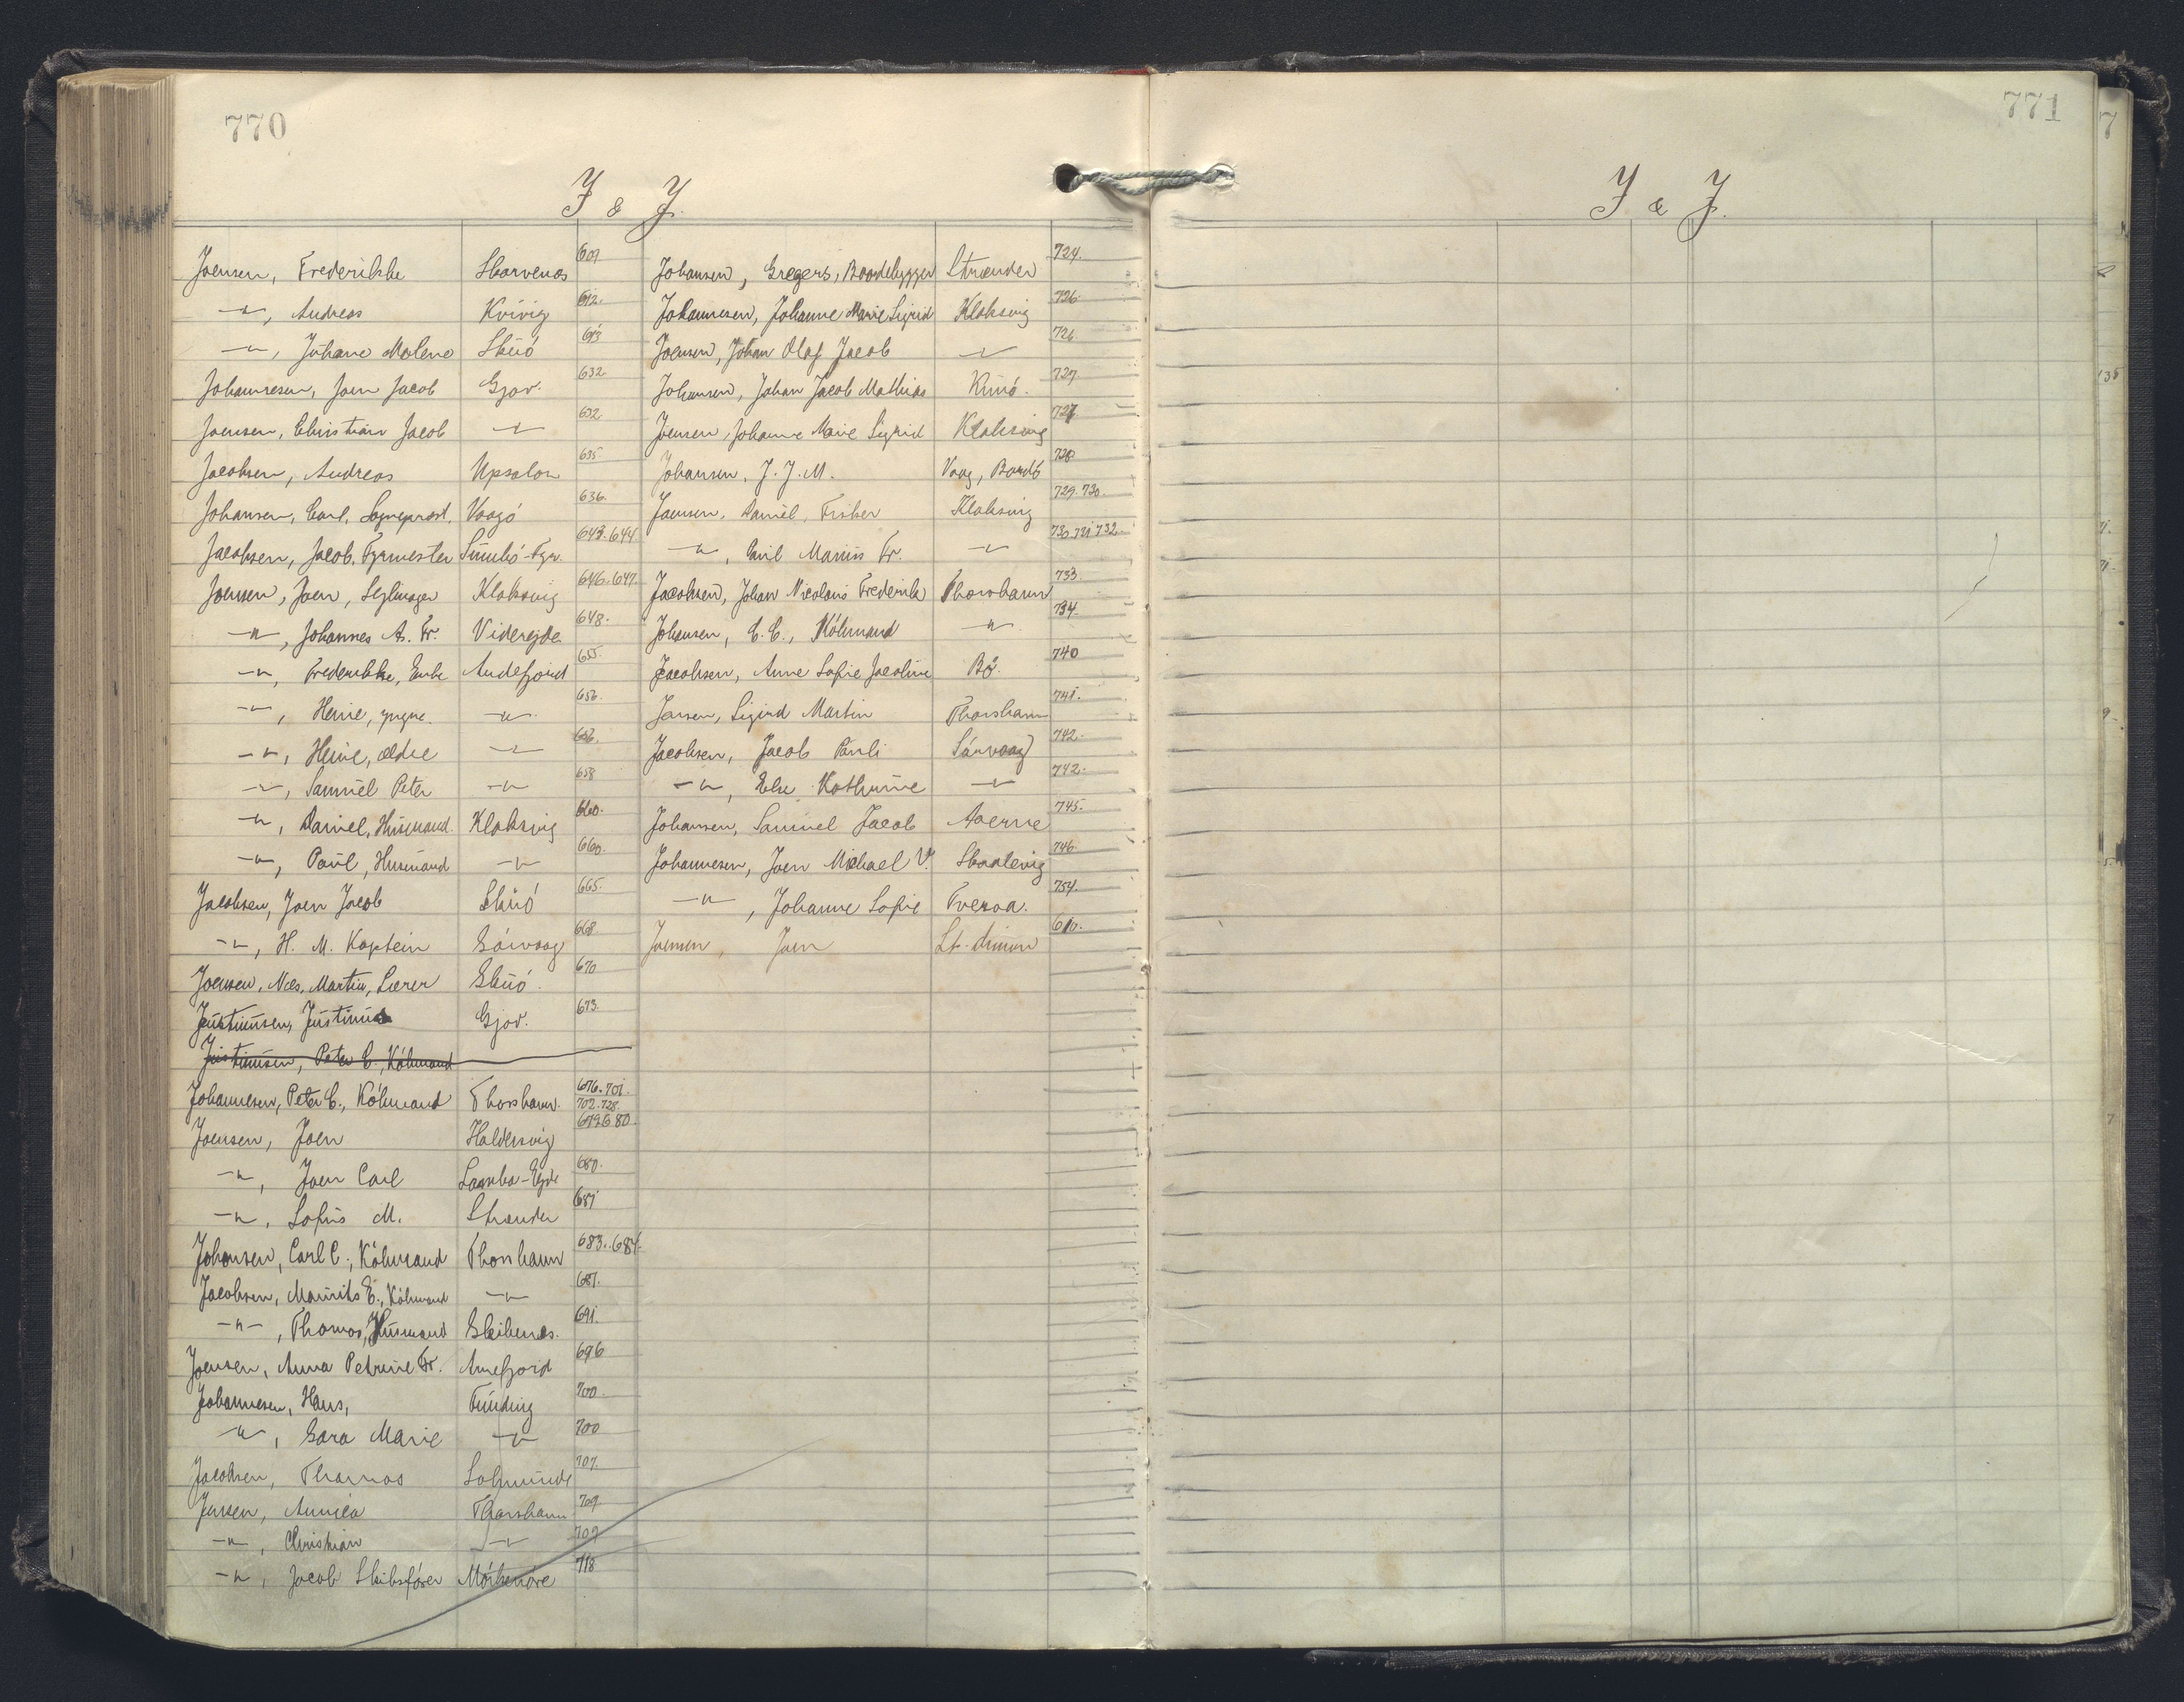 770
I & J.
Joensen, Frederikke Skarvenæs 609
—"—, Andreas Kvivig 612.
—"—, Juhane Malene Skúó 613
Johannesen, Joen Jacob Gjov. 632.
Joensen, Christian Jacob —"— 632.
Jacobsen, Andreas Upsalon 635
Johansen, Carl, Sogneprest, Vaagó 636.
Jacobsen, Jacob, Fyrmester Sumbó-Fyr. 643.644
Joensen, Joen, Sejlmager Klaksvig 646.647.
—"—, Johannes A. Fr. Viderejde 648.
—"—, Frederikke, Enke Andefjord 655.
—"—, Heine, yngre. —"— 656.
—"—, Heine, ældre —"—
—"—, Samuel Peter —"— 658
—"—, Daniel, Husmand. Klaksvig 660.
—"—, Paul, Husmand —"— 660.
Jacobsen, Joen Jacob Skúó 665.
—"—, H. M. Kaptein Sórvaag 668.
Joensen, Nils. Martin, Lærer Skúó. 670
Justinusen, Justinus Gjov. 673.
Justinusen, Peter C., Kóbmand
Johannesen, Peter C., Kóbmand Thorshavn. 676.701. 702.728.
Joensen, Joen Haldersvig 679.680.
—"—, Joen Carl Lamba-Ejde 680.
—"—, Sofus M. Strænder 681
Johansen, Carl C., Kóbmand Thorshavn 683.684.
Jacobsen, Mauritz E., Kóbmand —"— 687.
—"—, Thomas, Husmand Skibenæs. 691.
Joensen, Anna Petrine Fr. Arnefjord 696
Johannesen, Hans, Funding 700.
—"—, Sara Marie —"— 700
Jacobsen, Thomas Solmunde 707.
Jensen, Annica Thorshavn 709.
—"—, Christian —"— 709
—"—, Jacob Skibsfører Mórkenóre 718
Johansen, Gregers, Baadebygger Strænder 724.
Johannesen, Johanne Marie Sigrid Klaksvig 726.
Joensen, Johan Olaf Jacob —"— 726.
Johansen, Johan Jacob Mathias Kunó. 727.
Joensen, Johanne Marie Sigrid Klaksvig 727.
Johansen, J. J. M. Vaag, Bordó 728
Joensen, Daniel, Fisker Klaksvig 729.730.
—"—, Emil Marius Fr. —"— 730.731.732.
Jacobsen, Johan Nicolaus Frederik Thorshavn 733.
Johansen, C. C., Kóbmand —"— 734.
Jacobsen, Anne Sofie Jacobine Bó. 740
Jensen, Sigurd Martin Thorshavn 741.
Jacobsen, Jacob Pauli Sórvaag 742.
—"—, Else Kathrine —"— 742.
Johansen, Samuel Jacob Aaerne 745.
Johannesen, Joen Michael V. Skaalevig 746.
—"—, Johanne Sofie Tveraa. 754.
Joensen, Joen St. Dimon 610.
771
I & J.